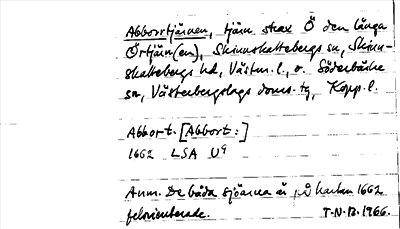 Abborrtjärnen, tjärn strax Ö den långa
Örtjärn(en), Skinnskattebergs sn, Skinn-
skattebergs hd, Västm. l., o. Söderbärke
sn, Västerbergslags doms. tg, Kopp. l.
Abbort. [Abbort:]
1662 LSA U9
Anm. De båda sjöarna är på kartan 1662
felorienterade. T.N.B. 1966.